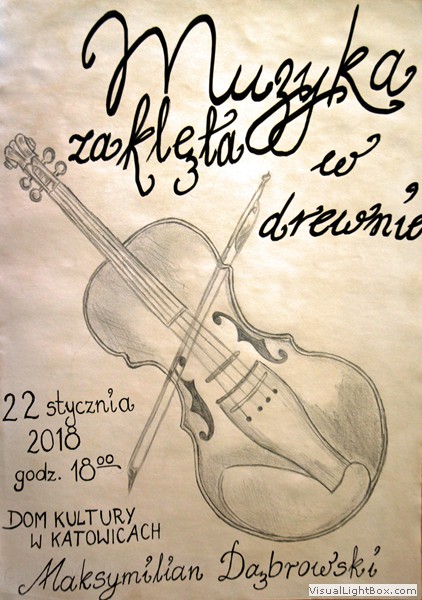 Muzyka
zaklęta w
drewnie
22 stycznia
2018
godz. 18⁰⁰
DOM KULTURY
W KATOWICACH
Maksymilian Dąbrowski
VisualLightBox.com